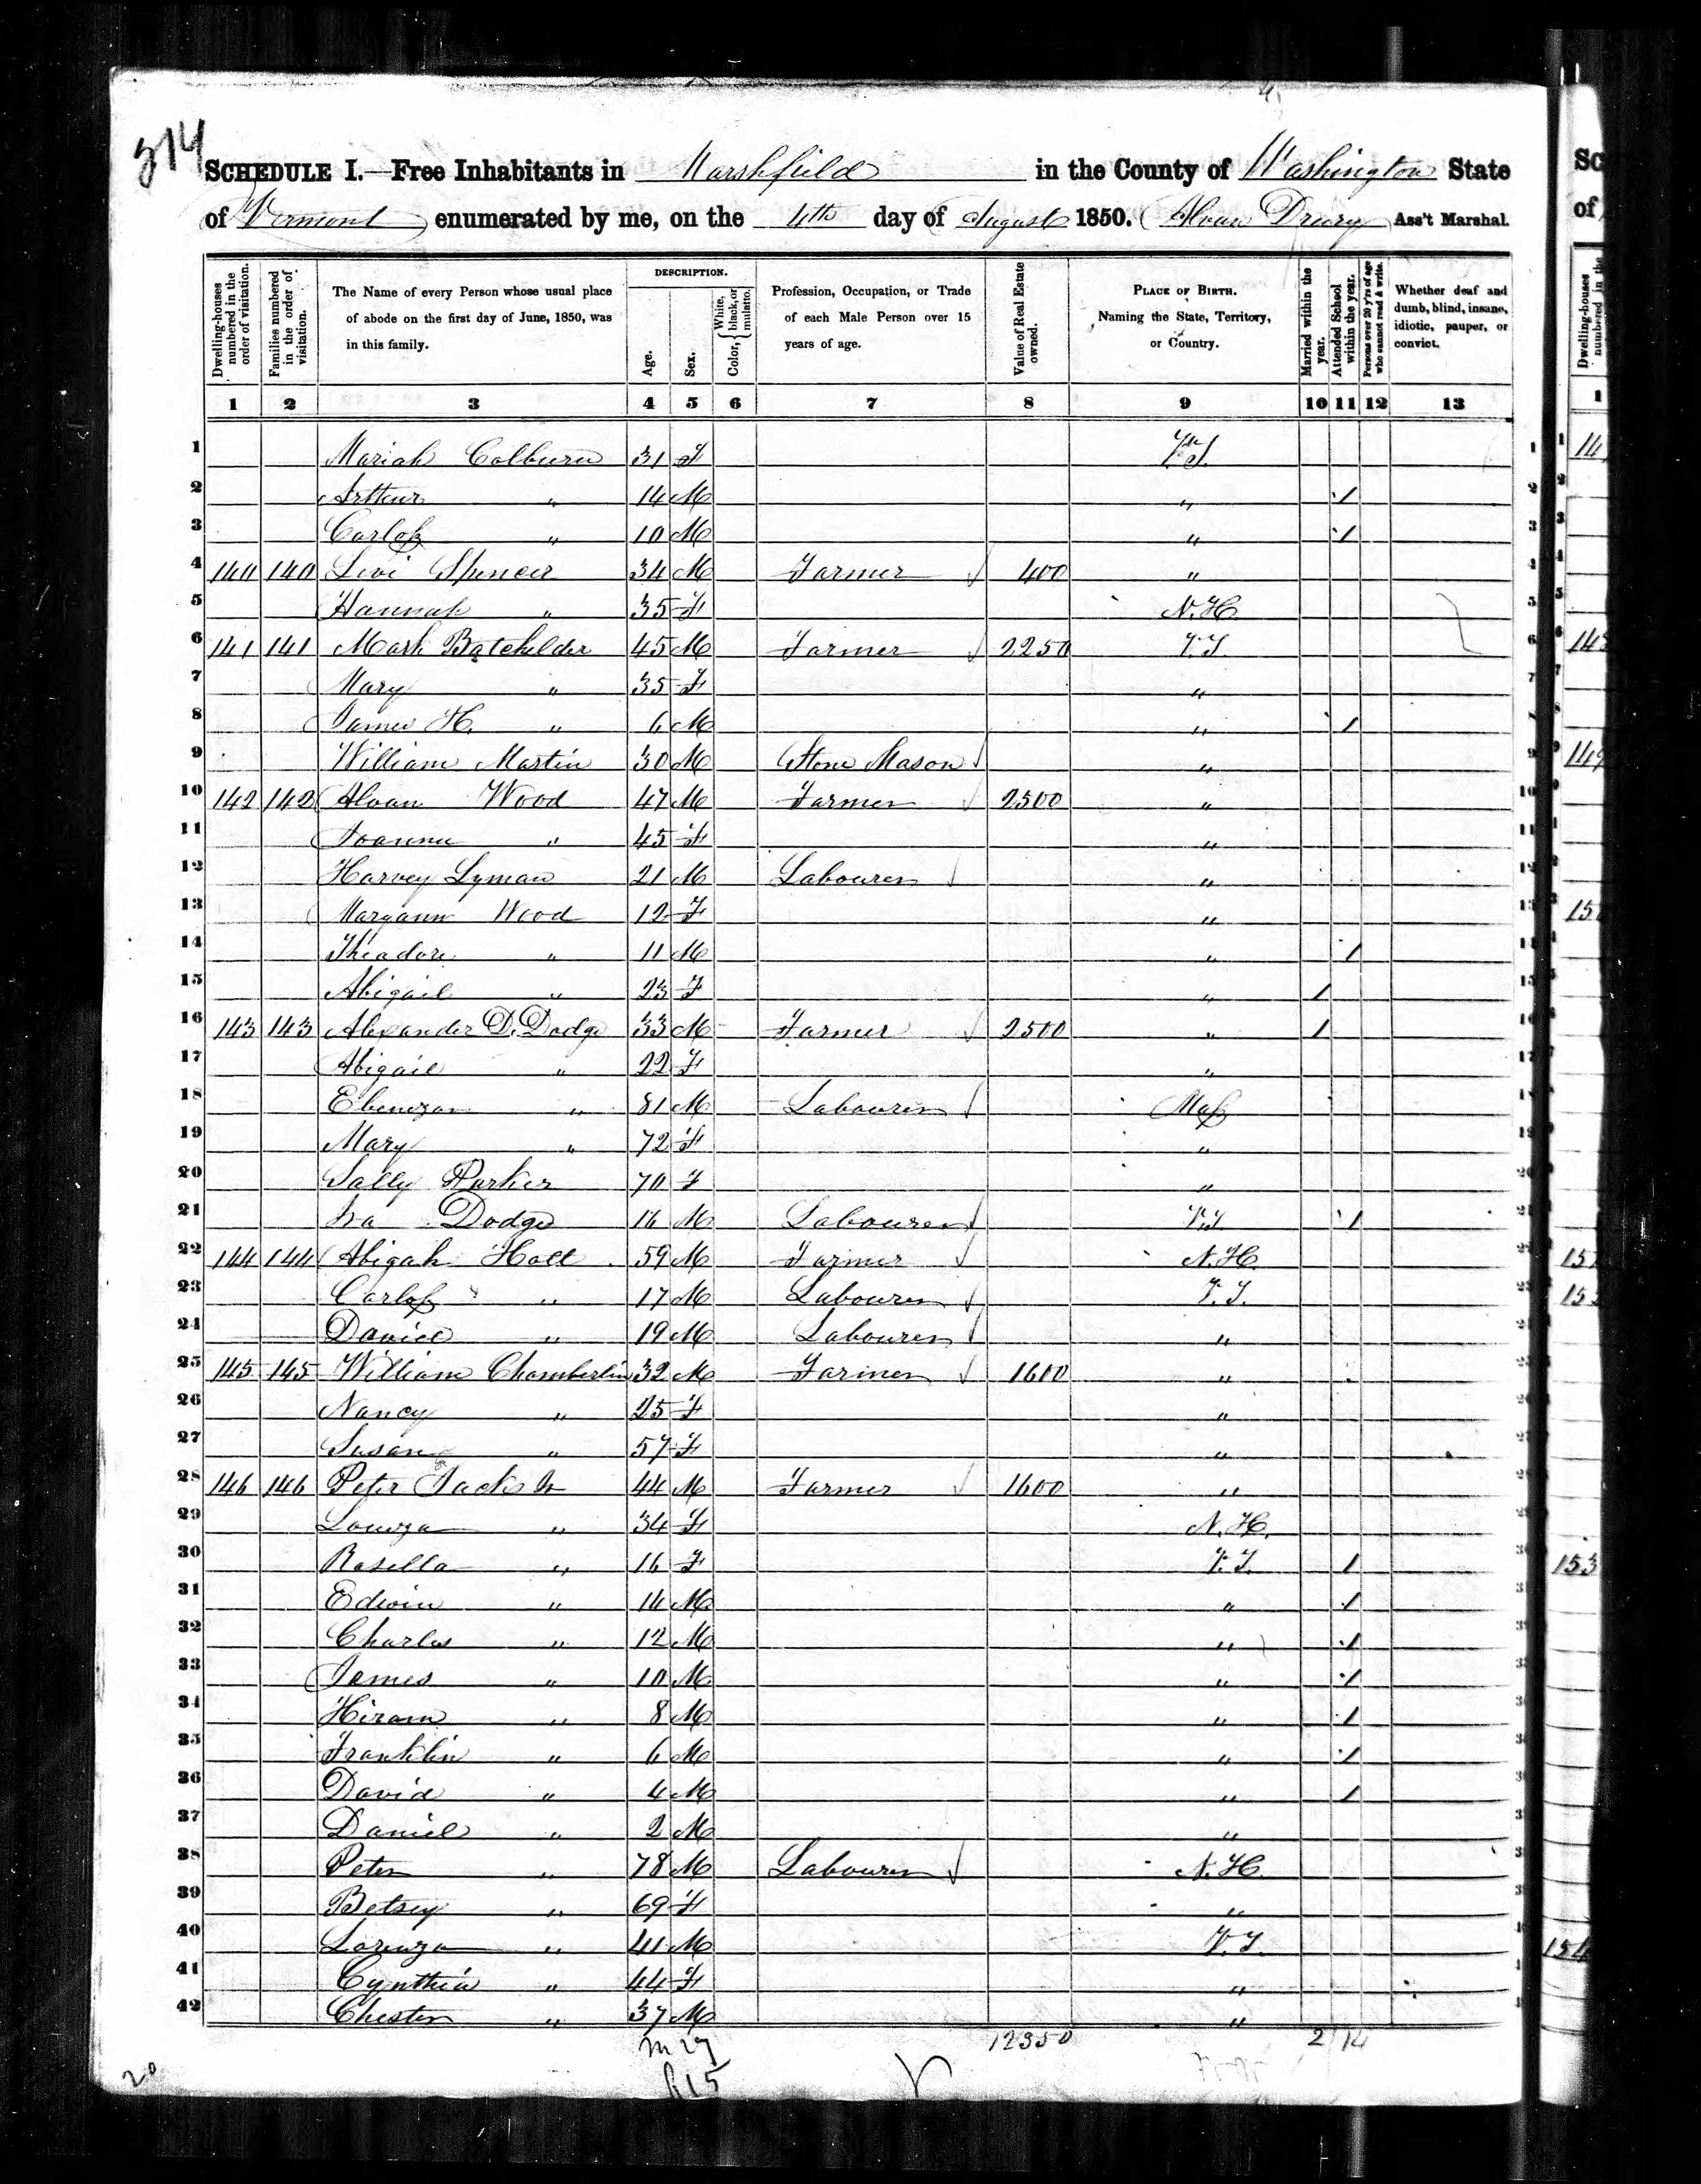 314
SCHEDULE I.—Free Inhabitants in Marshfield in the County of Washington State
of Vermont enumerated by me, on the 4th day of August 1850. Alvan Drury Ass't Marshal.
Dwelling-houses numbered in the order of visitation.
Families numbered in the order of visitation.
The Name of every Person whose usual place of abode on the first day of June, 1850, was in this family.
DESCRIPTION.
Age.
Sex.
Color, { White, black, or mulatto.
Profession, Occupation, or Trade of each Male Person over 15 years of age.
Value of Real Estate owned.
PLACE OF BIRTH. Naming the State, Territory, or Country.
Married within the year.
Attended School within the year.
Persons over 20 y'rs of age who cannot read & write.
Whether deaf and dumb, blind, insane, idiotic, pauper, or convict.
1 2 3 4 5 6 7 8 9 10 11 12 13
1 Mariah Colburn 31 F V.T. 1
2 Arthur " 14 M " / 2
3 Carlos " 10 M " / 3
4 140 140 Levi Spencer 34 M Farmer 400 " 4
5 Hannah " 35 F N.H. 5
6 141 141 Mark Batchelder 45 M Farmer 2250 V.T 6
7 Mary " 35 F " 7
8 James H. " 6 M " / 8
9 William Martin 30 M Stone Mason " 9
10 142 142 Alvan Wood 47 M Farmer 2500 " 10
11 Joanna " 45 F " 11
12 Harvey Lyman 21 M Labourer " 12
13 Maryann Wood 12 F " 13
14 Theadore " 11 M " / 14
15 Abigail " 23 F " / 15
16 143 143 Alexander D. Dodge 33 M Farmer 2500 " / 16
17 Abigail " 22 F " 17
18 Ebenezar " 81 M Labourer Mass 18
19 Mary " 72 F " 19
20 Sally Parker 70 F " 20
21 Ira Dodge 16 M Labourer V.T. / 21
22 144 144 Abigah Holt 59 M Farmer N.H. 22
23 Carlos " 17 M Labourer V.T. 23
24 Daniel " 19 M Labourer " 24
25 145 145 William Chamberlin 32 M Farmer 1600 " 25
26 Nancy " 25 F "
27 Susan " 57 F "
28 146 146 Peter Jack Jr 44 M Farmer 1600 "
29 Louiza " 34 F N.H.
30 Rosella " 16 F V.T. /
31 Edwin " 14 M " /
32 Charles " 12 M " /
33 James " 10 M " /
34 Hiram " 8 M " /
35 Franklin " 6 M " /
36 David " 4 M " /
37 Daniel " 2 M "
38 Peter " 78 M Labourer N.H.
39 Betsey " 69 F "
40 Lorenzo " 41 M V.T.
41 Cynthia " 44 F "
42 Chester " 37 M "
m 27 12350 2 14
f 15
20